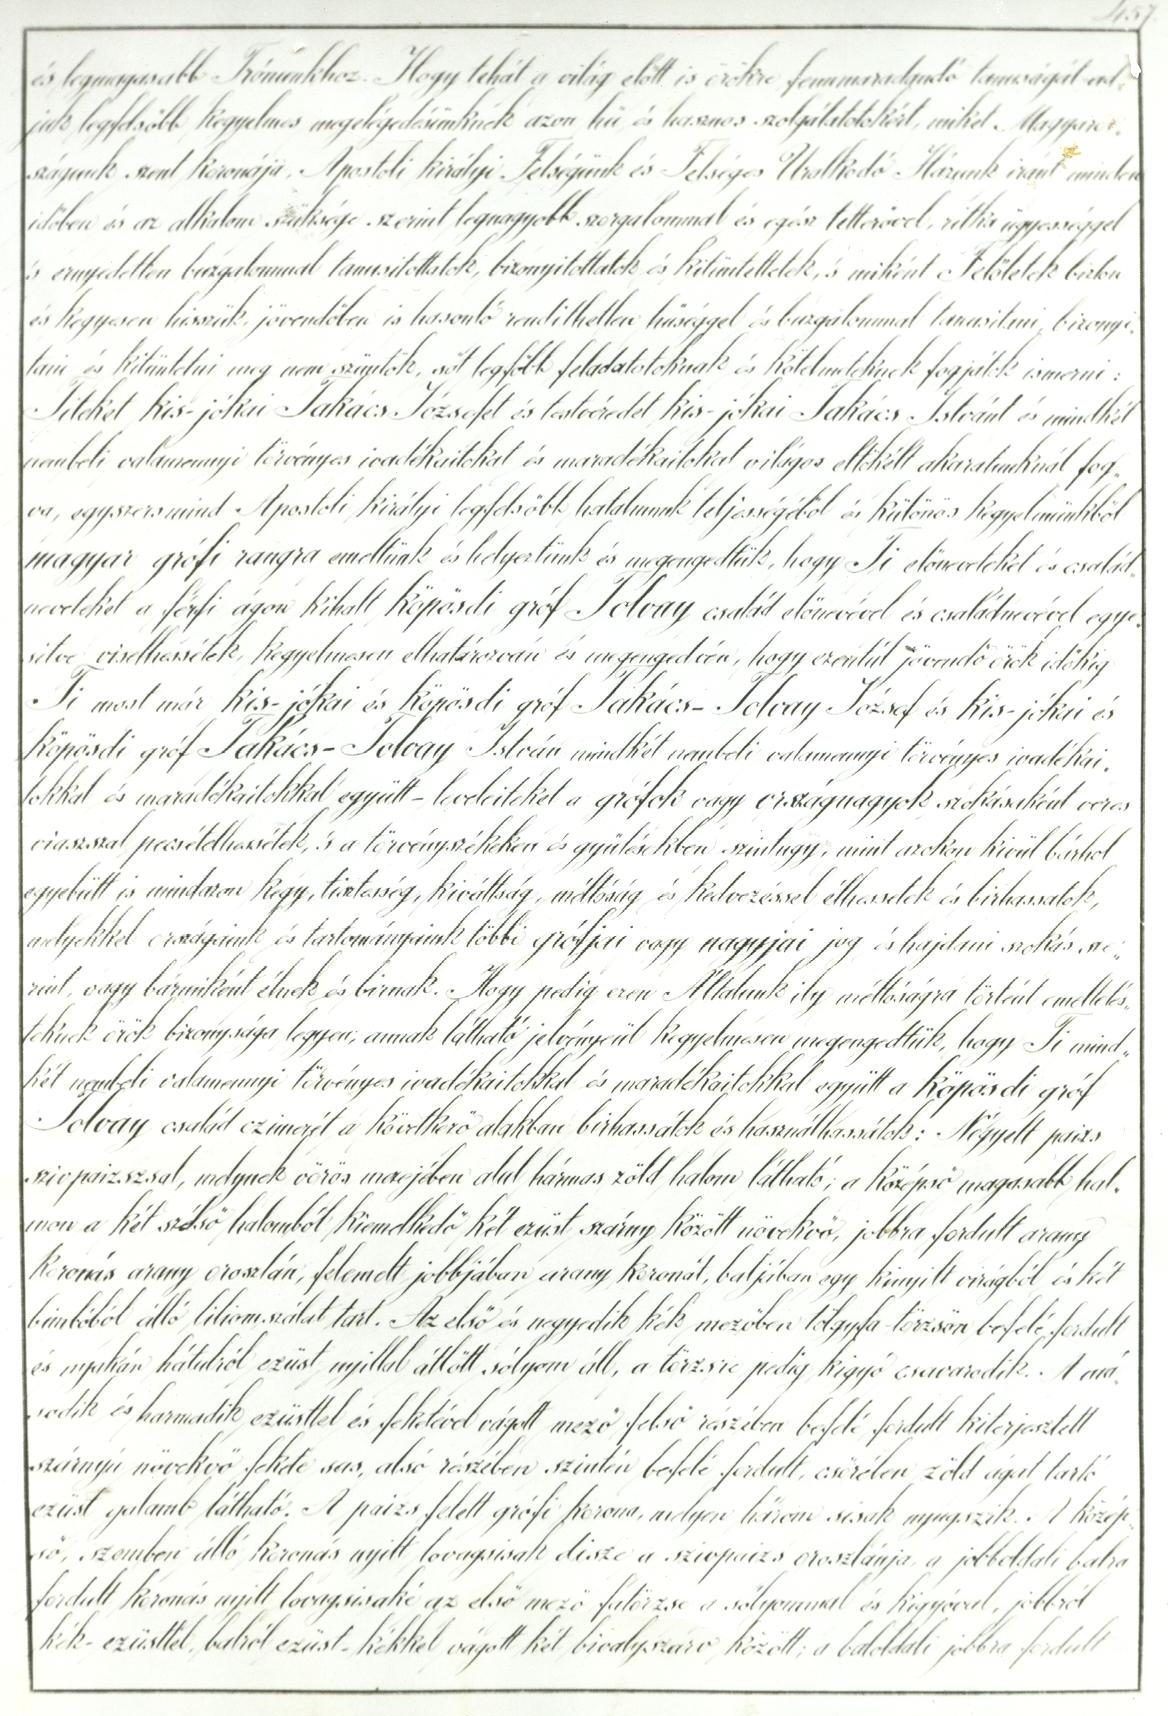 457.
és legmagasabb Trónunkhoz. Hogy tehát a világ előtt is örökre fennmaradandó tanuságát ad-
juk legfelsőbb kegyelmes megelégedésünknek azon hű és hasznos szolgálatotokért, miket Magyaror-
szágunk szent koronája, Apostoli királyi Felségünk és Felséges Uralkodó Házunk iránt minden
időben és az alkalom szüksége szerint legnagyobb szorgalommal és egész tetterővel, ritka ügyességgel
s ernyedetlen buzgalommal tanusitottatok, bizonyitottatok és kitüntettetek, s miként Felőletek bizton
és kegyesen hisszük, jövendőben is hasonló rendithetlen hűséggel és buzgalommal tanusitni, bizonyi-
tani és kitüntetni meg nem szüntök, sőt legfőbb feladatotoknak és kötelmeteknek fogjátok ismerni:
Titeket kis-jókai Takács Józsefet és testvéredet kis-jókai Takács Istvánt és mindkét
nembeli valamennyi törvényes ivadékaitokat és maradékaitokat világos eltökélt akaratunknál fog-
va, egyszersmind Apostoli királyi legfelsőbb hatalmunk teljességéből és különös kegyelmünkből
magyar grófi rangra emeltünk és helyeztünk és megengedtük, hogy Ti előneveteket és család-
neveteket a férfi ágon kihalt köpösdi gróf Tolvay család előnevével és családnevével egye-
sitve viselhessétek, kegyelmesen elhatározván és megengedvén, hogy ezentúl jövendő örök időkig
Ti most már kis-jókai és köpösdi gróf Takács-Tolvay József és kis-jókai és
köpösdi gróf Takács-Tolvay István mindkét nembeli valamennyi törvényes ivadékai-
tokkal és maradékaitokkal együtt – leveleiteket a grófok vagy országnagyok szokásaként vörös
viaszszal pecsételhessétek, s a törvényszékeken és gyülésekben szintugy, mint azokon kivül bárhol
egyebütt is mindazon kegy, tisztesség, kiváltság, méltóság és kedvezéssel élhessetek és birhassatok,
melyekkel országaink és tartományaink többi grófjai vagy nagyjai jog és hajdani szokás sze-
rint, vagy bármiként élnek és birnak. Hogy pedig ezen Általunk ily méltóságra történt emelteté-
teknek örök bizonysága legyen, annak látható jelvényeül kegyelmesen megengedtük, hogy Ti mind-
két nembeli valamennyi törvényes ivadékaitokkal és maradékaitokkal együtt a köpösdi gróf
Tolvay család czimerét a következő alakban birhassátok és használhassátok: Négyelt paizs
szivpaizszsal, melynek vörös mezejében alul hármas zöld halom látható; a középső magasabb hal-
mon a két szélső halomból kiemelkedő két ezüst szárny között növekvő, jobbra fordult arany
koronás arany oroszlán, felemelt jobbjában arany koronát, baljában egy kinyilt virágból és két
bimbóból álló liliomszálat tart. Az első és negyedik kék mezőben tölgyfa-törzsön befelé fordult
és nyakán hátulról ezüst nyillal átlőtt sólyom áll, a törzsre pedig kigyó csavarodik. A má-
sodik és harmadik ezüsttel és feketével vágott mező felső részében befelé fordult kiterjesztett
szárnyú növekvő fekete sas, alsó részében szintén befelé fordult, csőrében zöld ágat tartó
ezüst galamb látható. A paizs felett grófi korona, melyen három sisak nyugszik. A közép-
ső, szemben álló koronás nyilt lovagsisak disze a szivpaizs oroszlánja, a jobboldali balra
fordult koronás nyilt lovagsisaké az első mező fatörzse a sólyommal és kigyóval, jobbról
kék-ezüsttel, balról ezüst-kékkel vágott két bivalyszarv között; a baloldali jobbra fordult